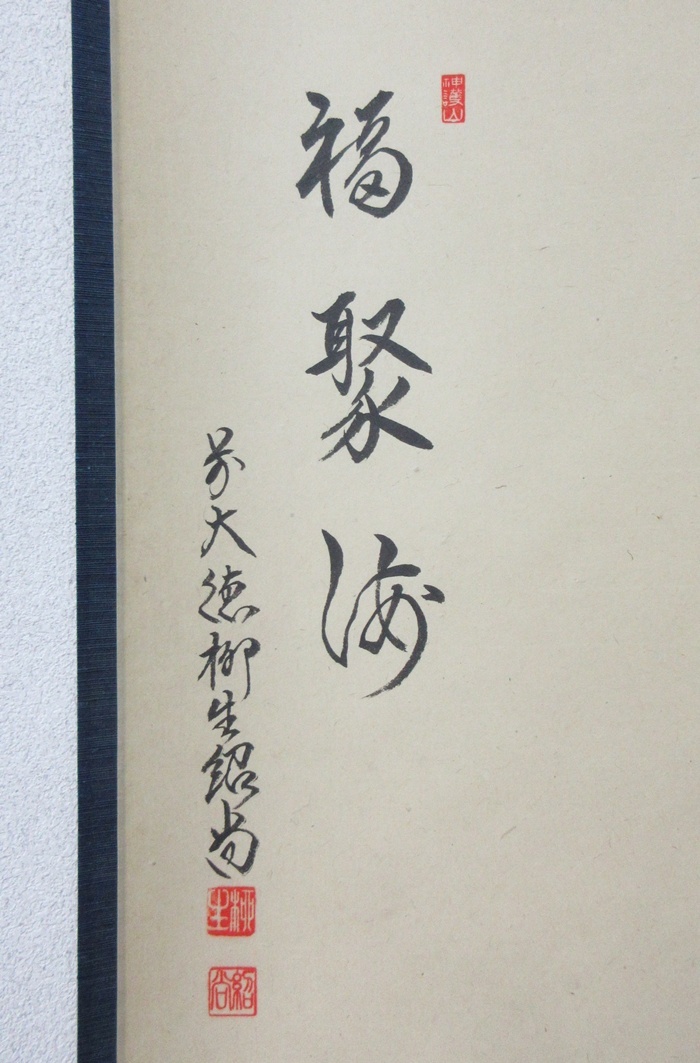 神護山
福聚海
前大徳柳生紹尚
柳生
紹尚